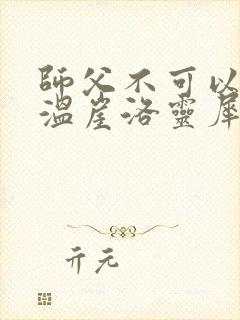 師父不可以
溫崖洛靈犀
亓元